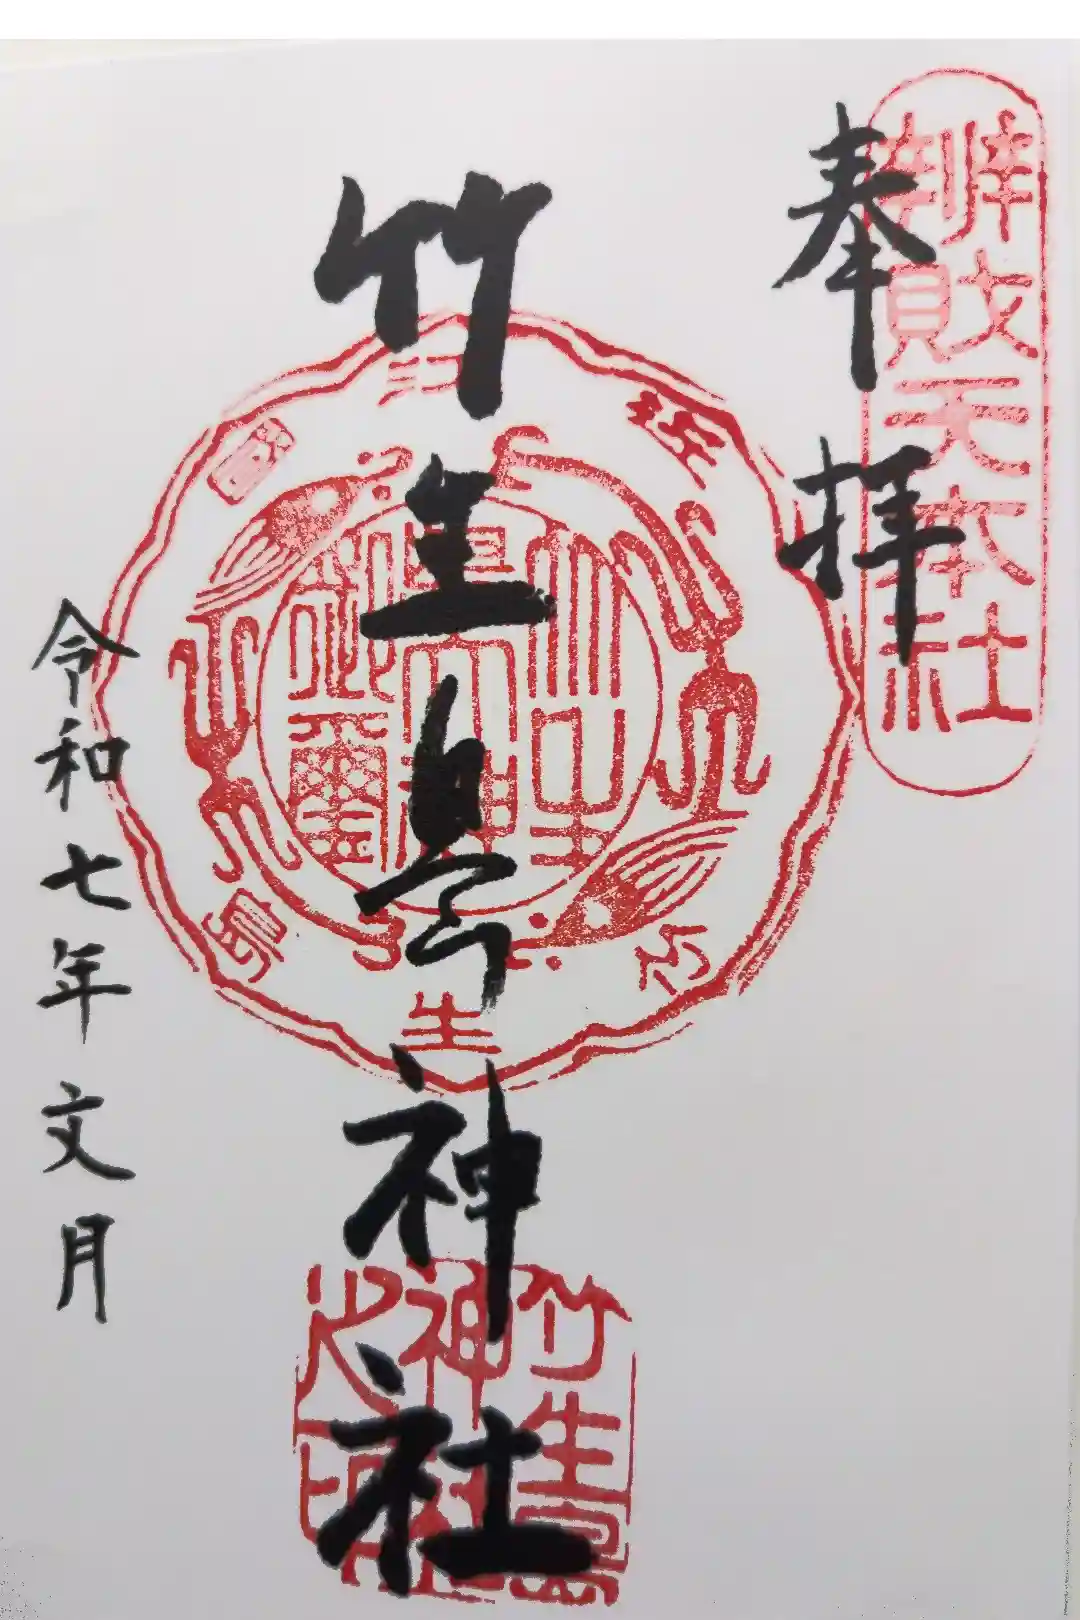 奉拝
辨財天本社
竹生島神社
竹生島神社之印
令和七年文月